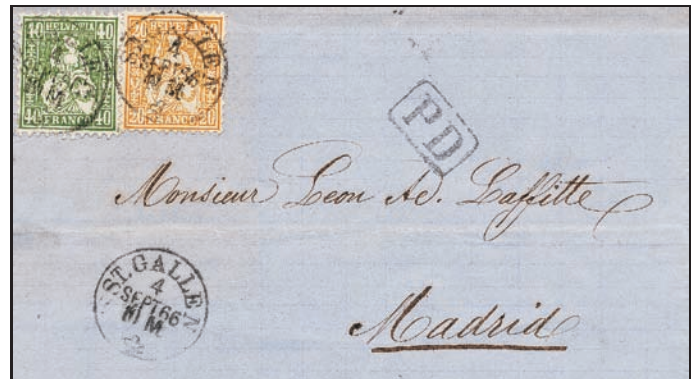 40 HELVETIA 40
40 FRANCO 40
20 20
20 FRANCO 20
4
SEPT 66
M
PD
Monsieur Leon Ad. Laffitte
ST. GALLEN
4
SEPT 66
M
Madrid